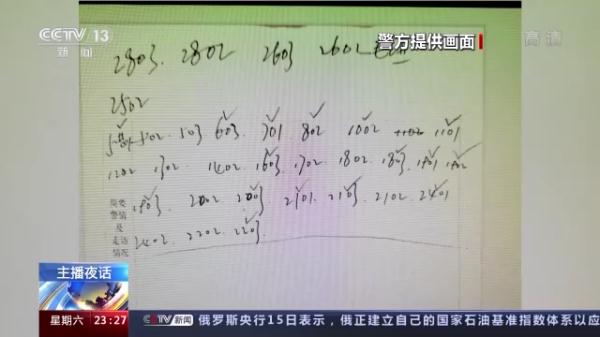 CCTV 13
新闻
高清
警方提供画面
2803. 2802 2603 2602
2502
502 503 603 701 802 1002 1102 1101
1202 1302 1402 1603 1702 1802 1803 1901 1902
1903 2002 2003 2101 2103 2102 2401
简要
警情
及
走访
情况
2402 2202 2203
主播夜话
星期六 23:27 CCTV新闻 俄罗斯央行15日表示，俄正建立自己的国家石油基准指数体系以应